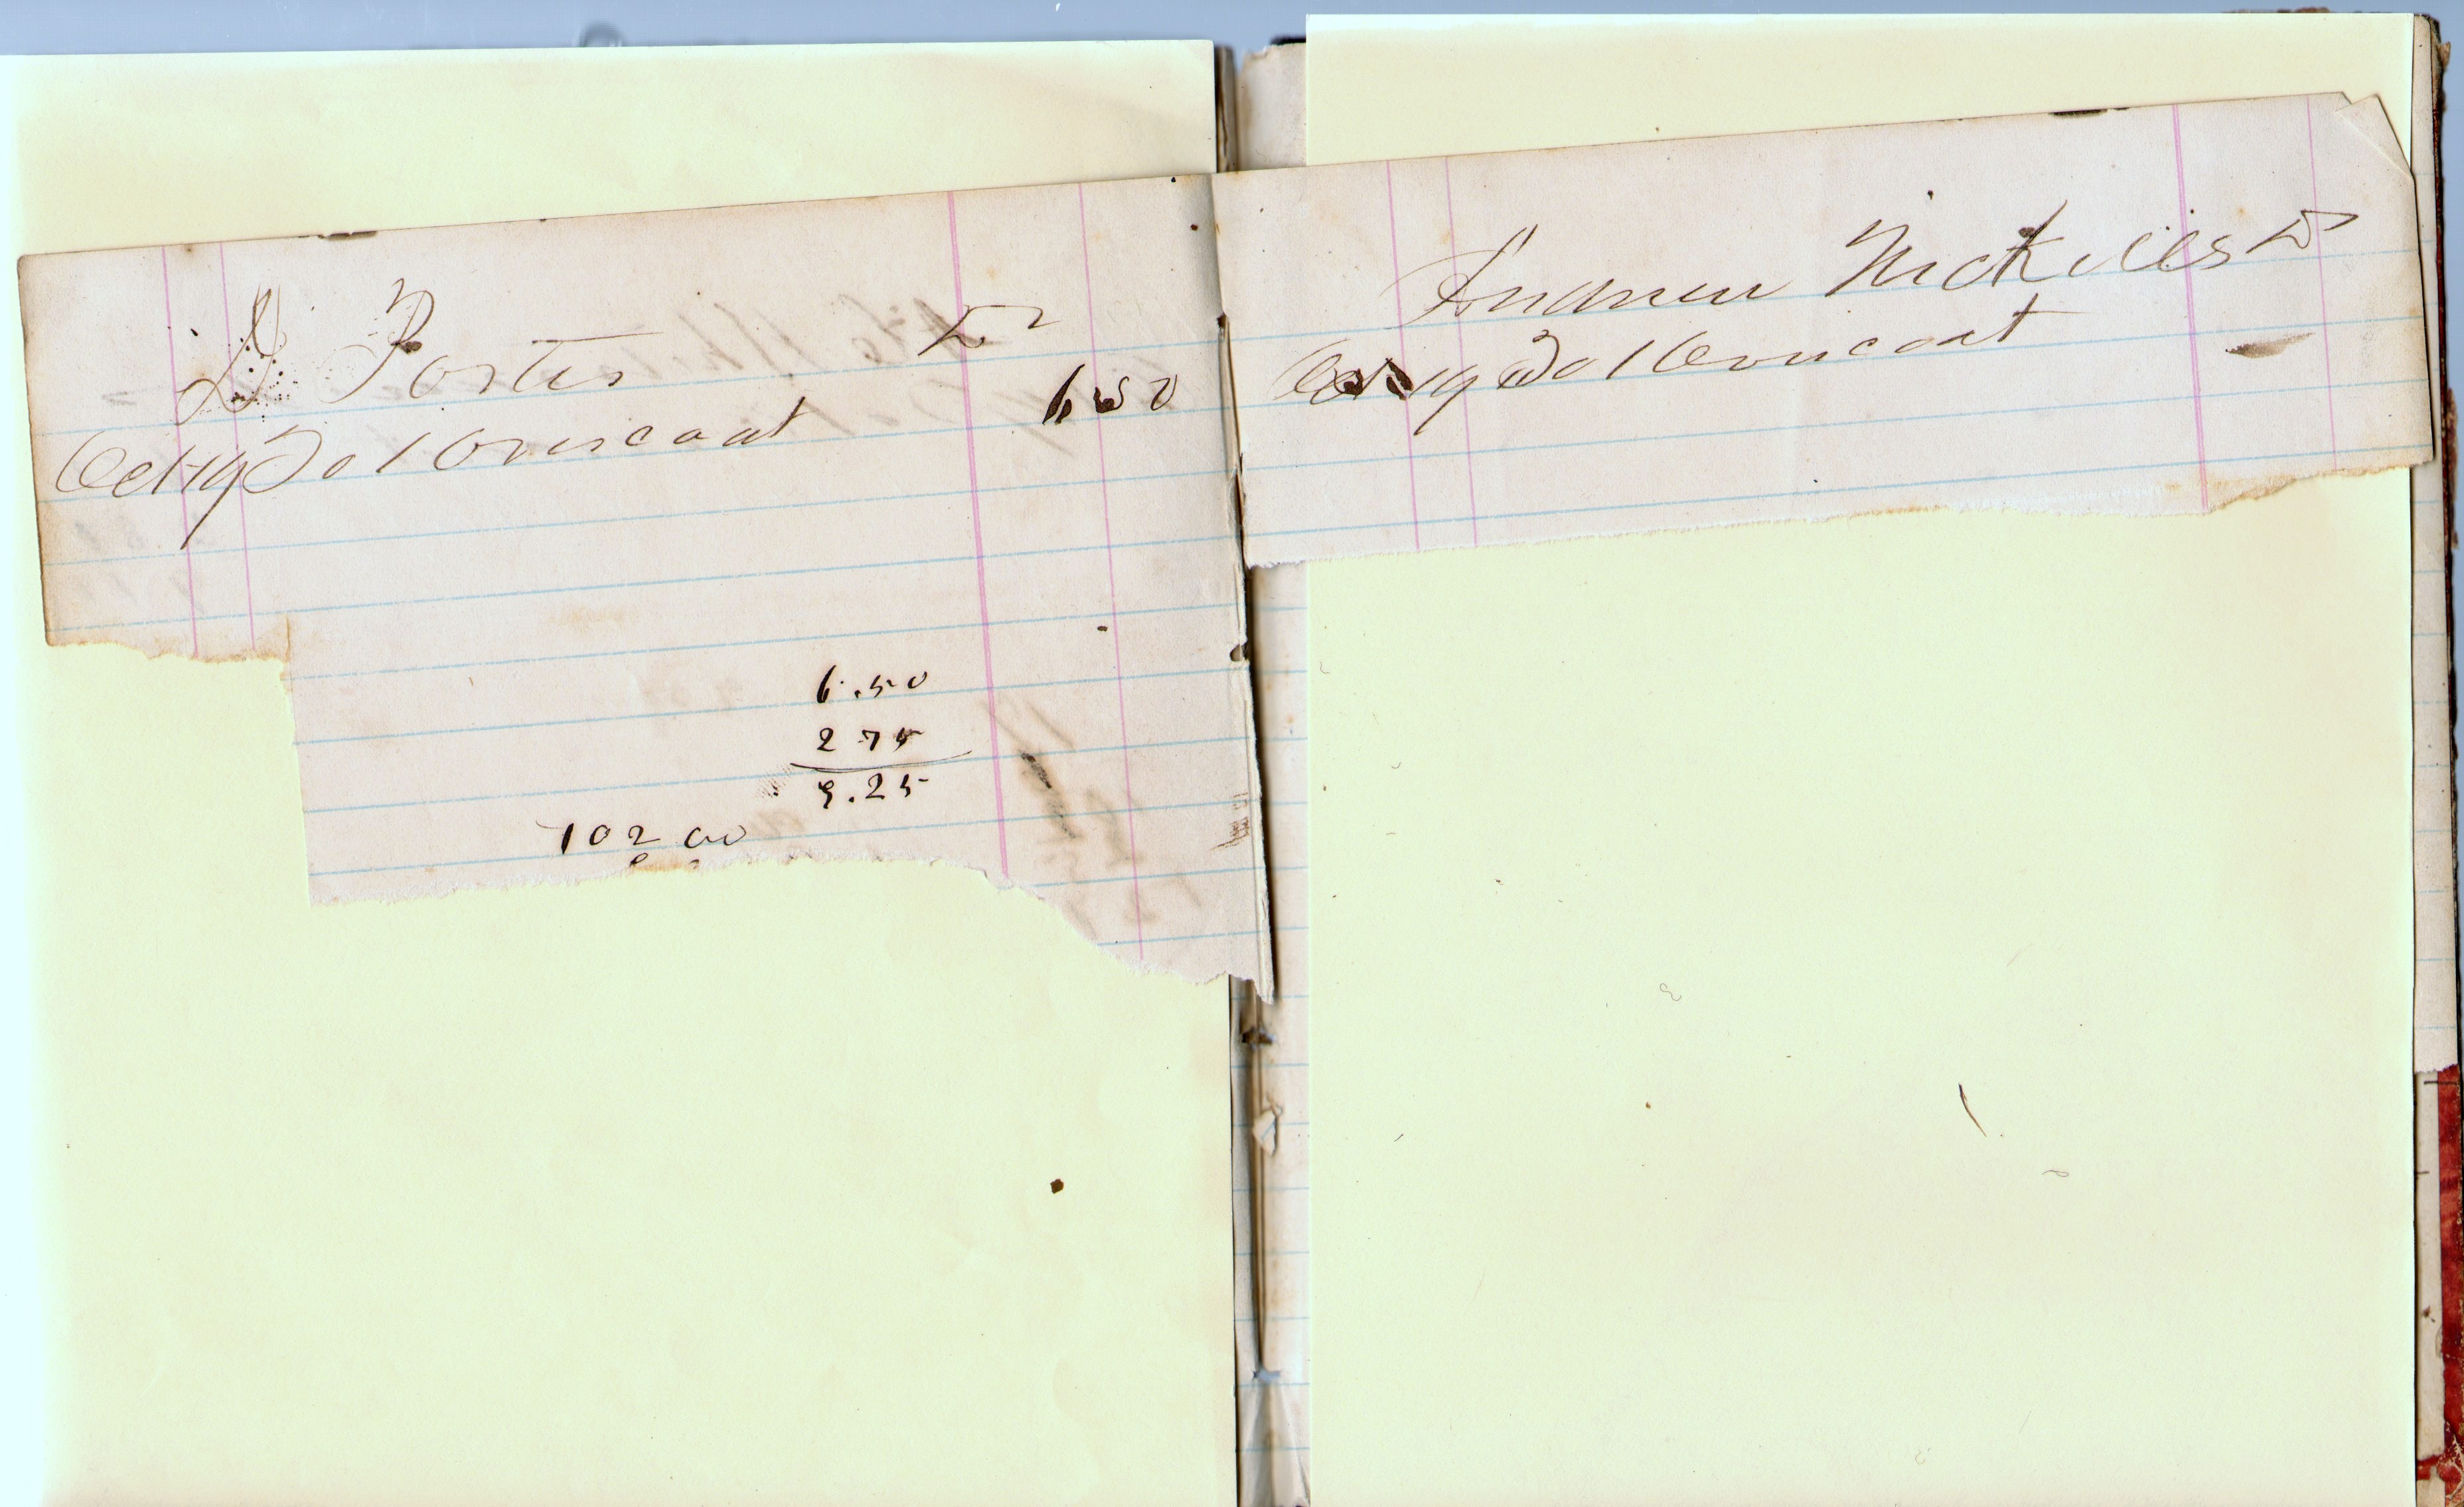 D Porter Dr
Oct 19 To 1 Overcoat 6 50
6.50
2 75
9.25
102 00
Andrew Nickells Dr
Oct 19 To 1 Overcoat